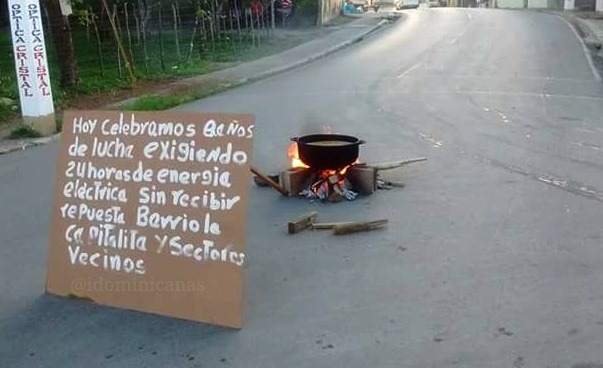 OPTICA CRISTAL
OPTICA CRISTAL
Hoy Celebramos 8 años
de lucha exigiendo
24 horas de energia
eléctrica sin recibir
repuesta Barrio la
Capitalita y Sectores
Vecinos
@idominicanas